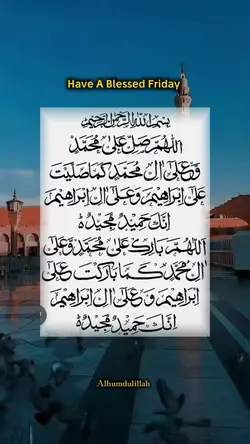 Have A Blessed Friday
بسم الله الرحمن الرحيم
اللهم صل على محمد
وعلى ال محمد كما صليت
على ابراهيم وعلى ال ابراهيم
انك حميد مجيد
اللهم بارك على محمد وعلى
ال محمد كما باركت على
ابراهيم وعلى ال ابراهيم
انك حميد مجيد
Alhumdulillah